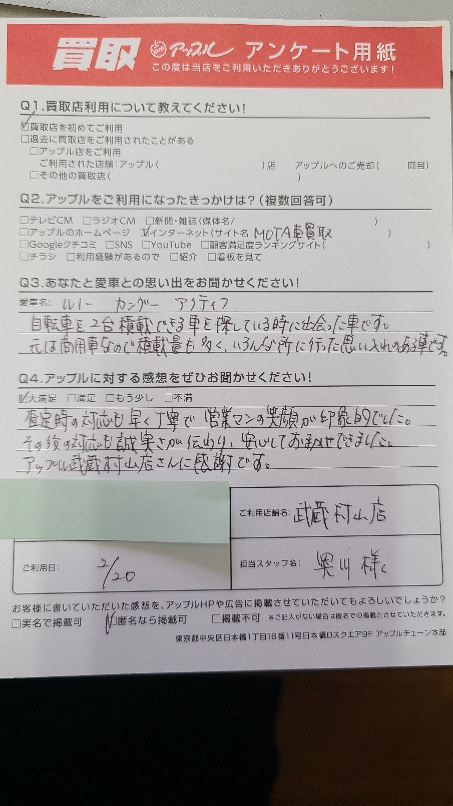 買取 アップル アンケート用紙
この度は当店をご利用いただきありがとうございます!
Q1.買取店利用について教えてください!
☑買取店を初めてご利用
□過去に買取店をご利用されたことがある
□アップル店をご利用
ご利用された店舗:アップル( )店 アップルへのご売却( 回目)
□その他の買取店( )
Q2.アップルをご利用になったきっかけは?(複数回答可)
□テレビCM □ラジオCM □新聞・雑誌(媒体名/ )
□アップルのホームページ ☑インターネット(サイト名 MOTA車買取 )
□Googleクチコミ □SNS □YouTube □顧客満足度ランキングサイト( )
□チラシ □利用経験があるので □紹介 □看板を見て
Q3.あなたと愛車との思い出をお聞かせください!
愛車名: ルノー カングー アクティフ
自転車を2台積載できる車を探している時に出会った車です。
元は商用車なので積載量も多く、いろんな所に行った思い入れのある車です。
Q4.アップルに対する感想をぜひお聞かせください!
☑大満足 □満足 □もう少し □不満
査定時の対応も早く丁寧で営業マンの笑顔が印象的でした。
その後の対応も誠実さが伝わり、安心しておまかせできました。
アップル武蔵村山店さんに感謝です。
ご利用店舗名: 武蔵村山店
ご利用日: 2/20
担当スタッフ名: 奥川 様
お客様に書いていただいた感想を、アップルHPや広告に掲載させていただいてもよろしいでしょうか?
□実名で掲載可 ☑匿名なら掲載可 □掲載不可 ※ご記入がない場合は匿名での掲載とさせていただきます。
東京都中央区日本橋1丁目16番11号日本橋Dスクエア9F アップルチェーン本部